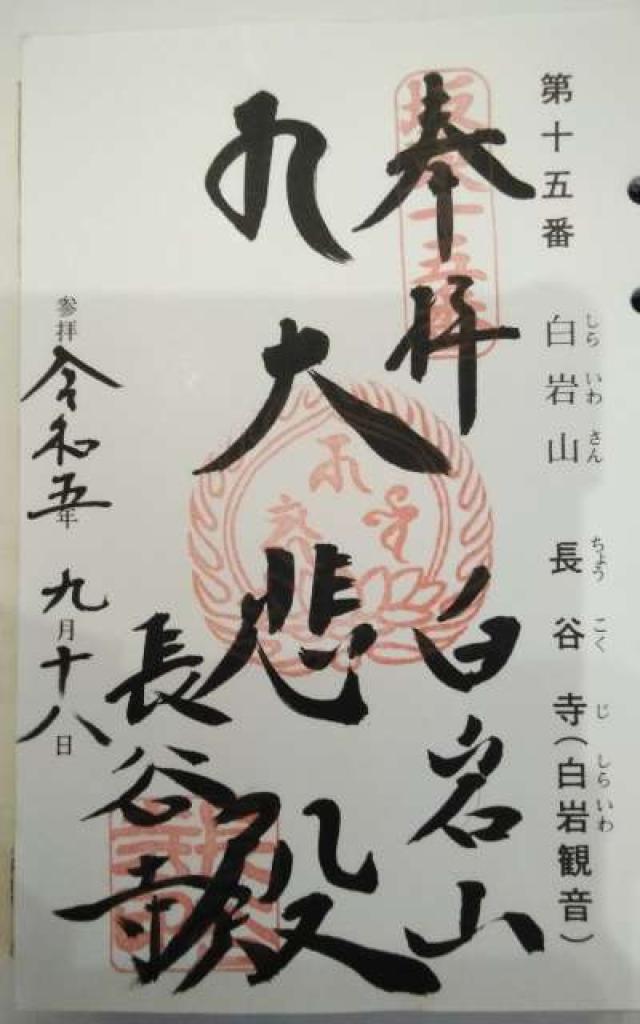 第十五番 白岩山 長谷寺(白岩観音)
しら いわ さん ちょう こく じ しらいわ
奉拝 白岩山
坂東十五番
大悲殿
長谷寺
参拝 令和五年 九月十八日